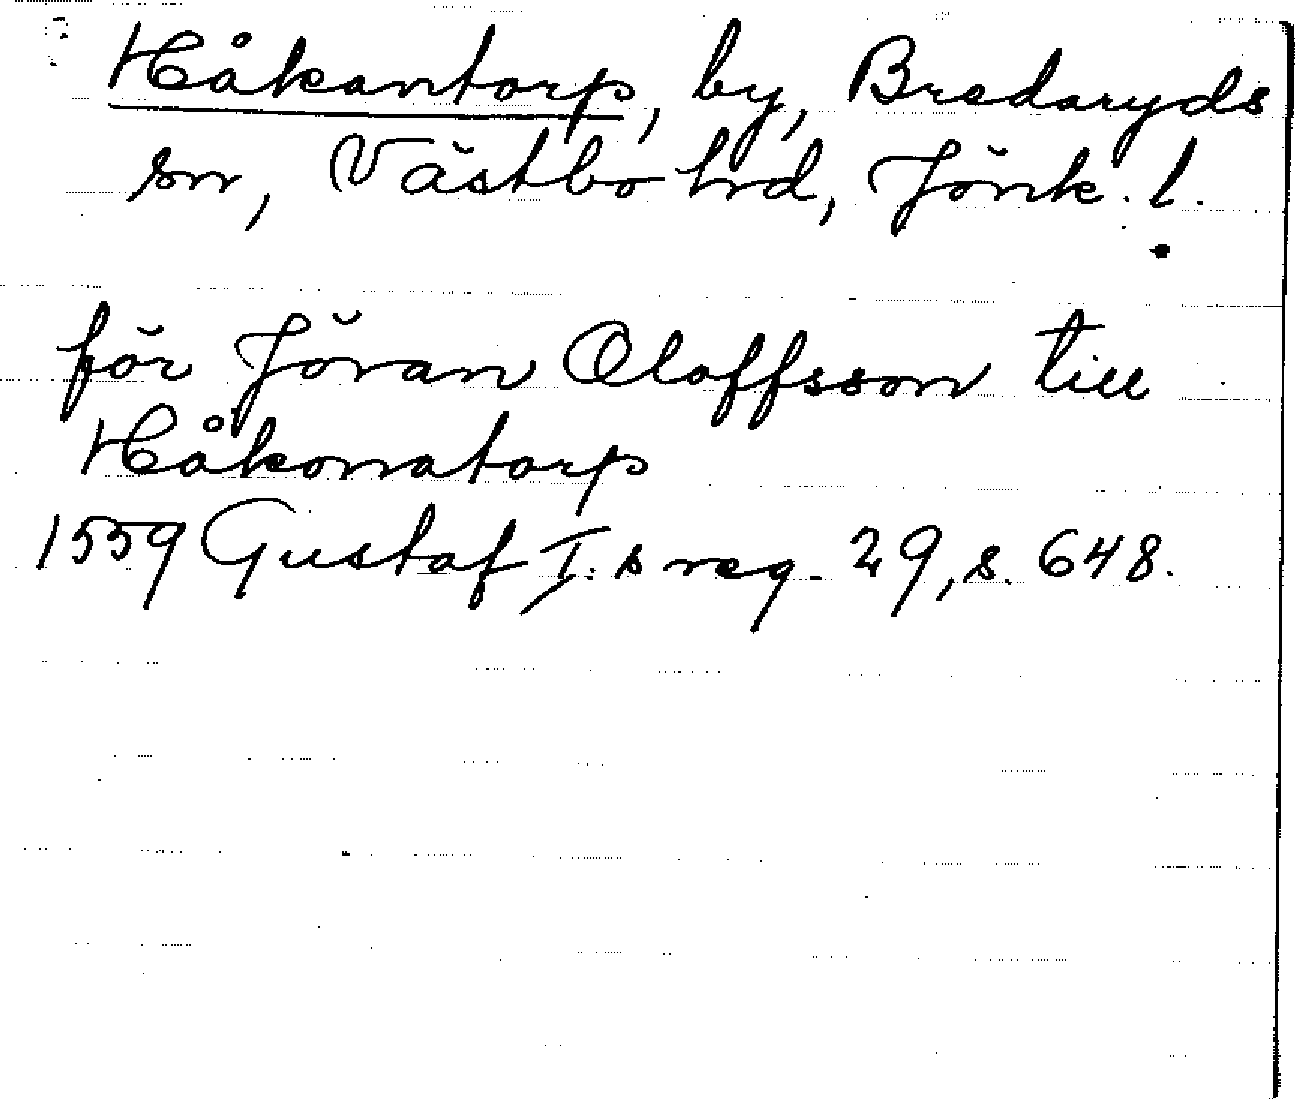 Håkantorp, by, Bredaryds
sn, Västbo hrd, Jönk. l.
för Jöran Oloffsson till
Håkonatorp
1559 Gustaf I:s reg. 29, s. 648.